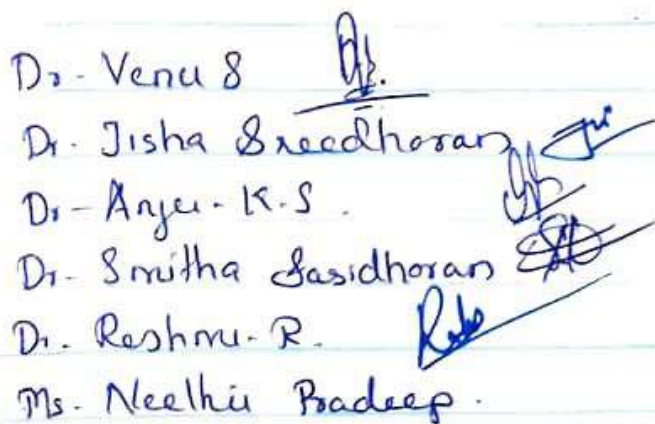 Dr. Venu S
Dr. Jisha Sreedharan
Dr. Anju. K. S.
Dr. Smitha Sasidharan
Dr. Reshmi. R.
Ms. Neethu Pradeep.